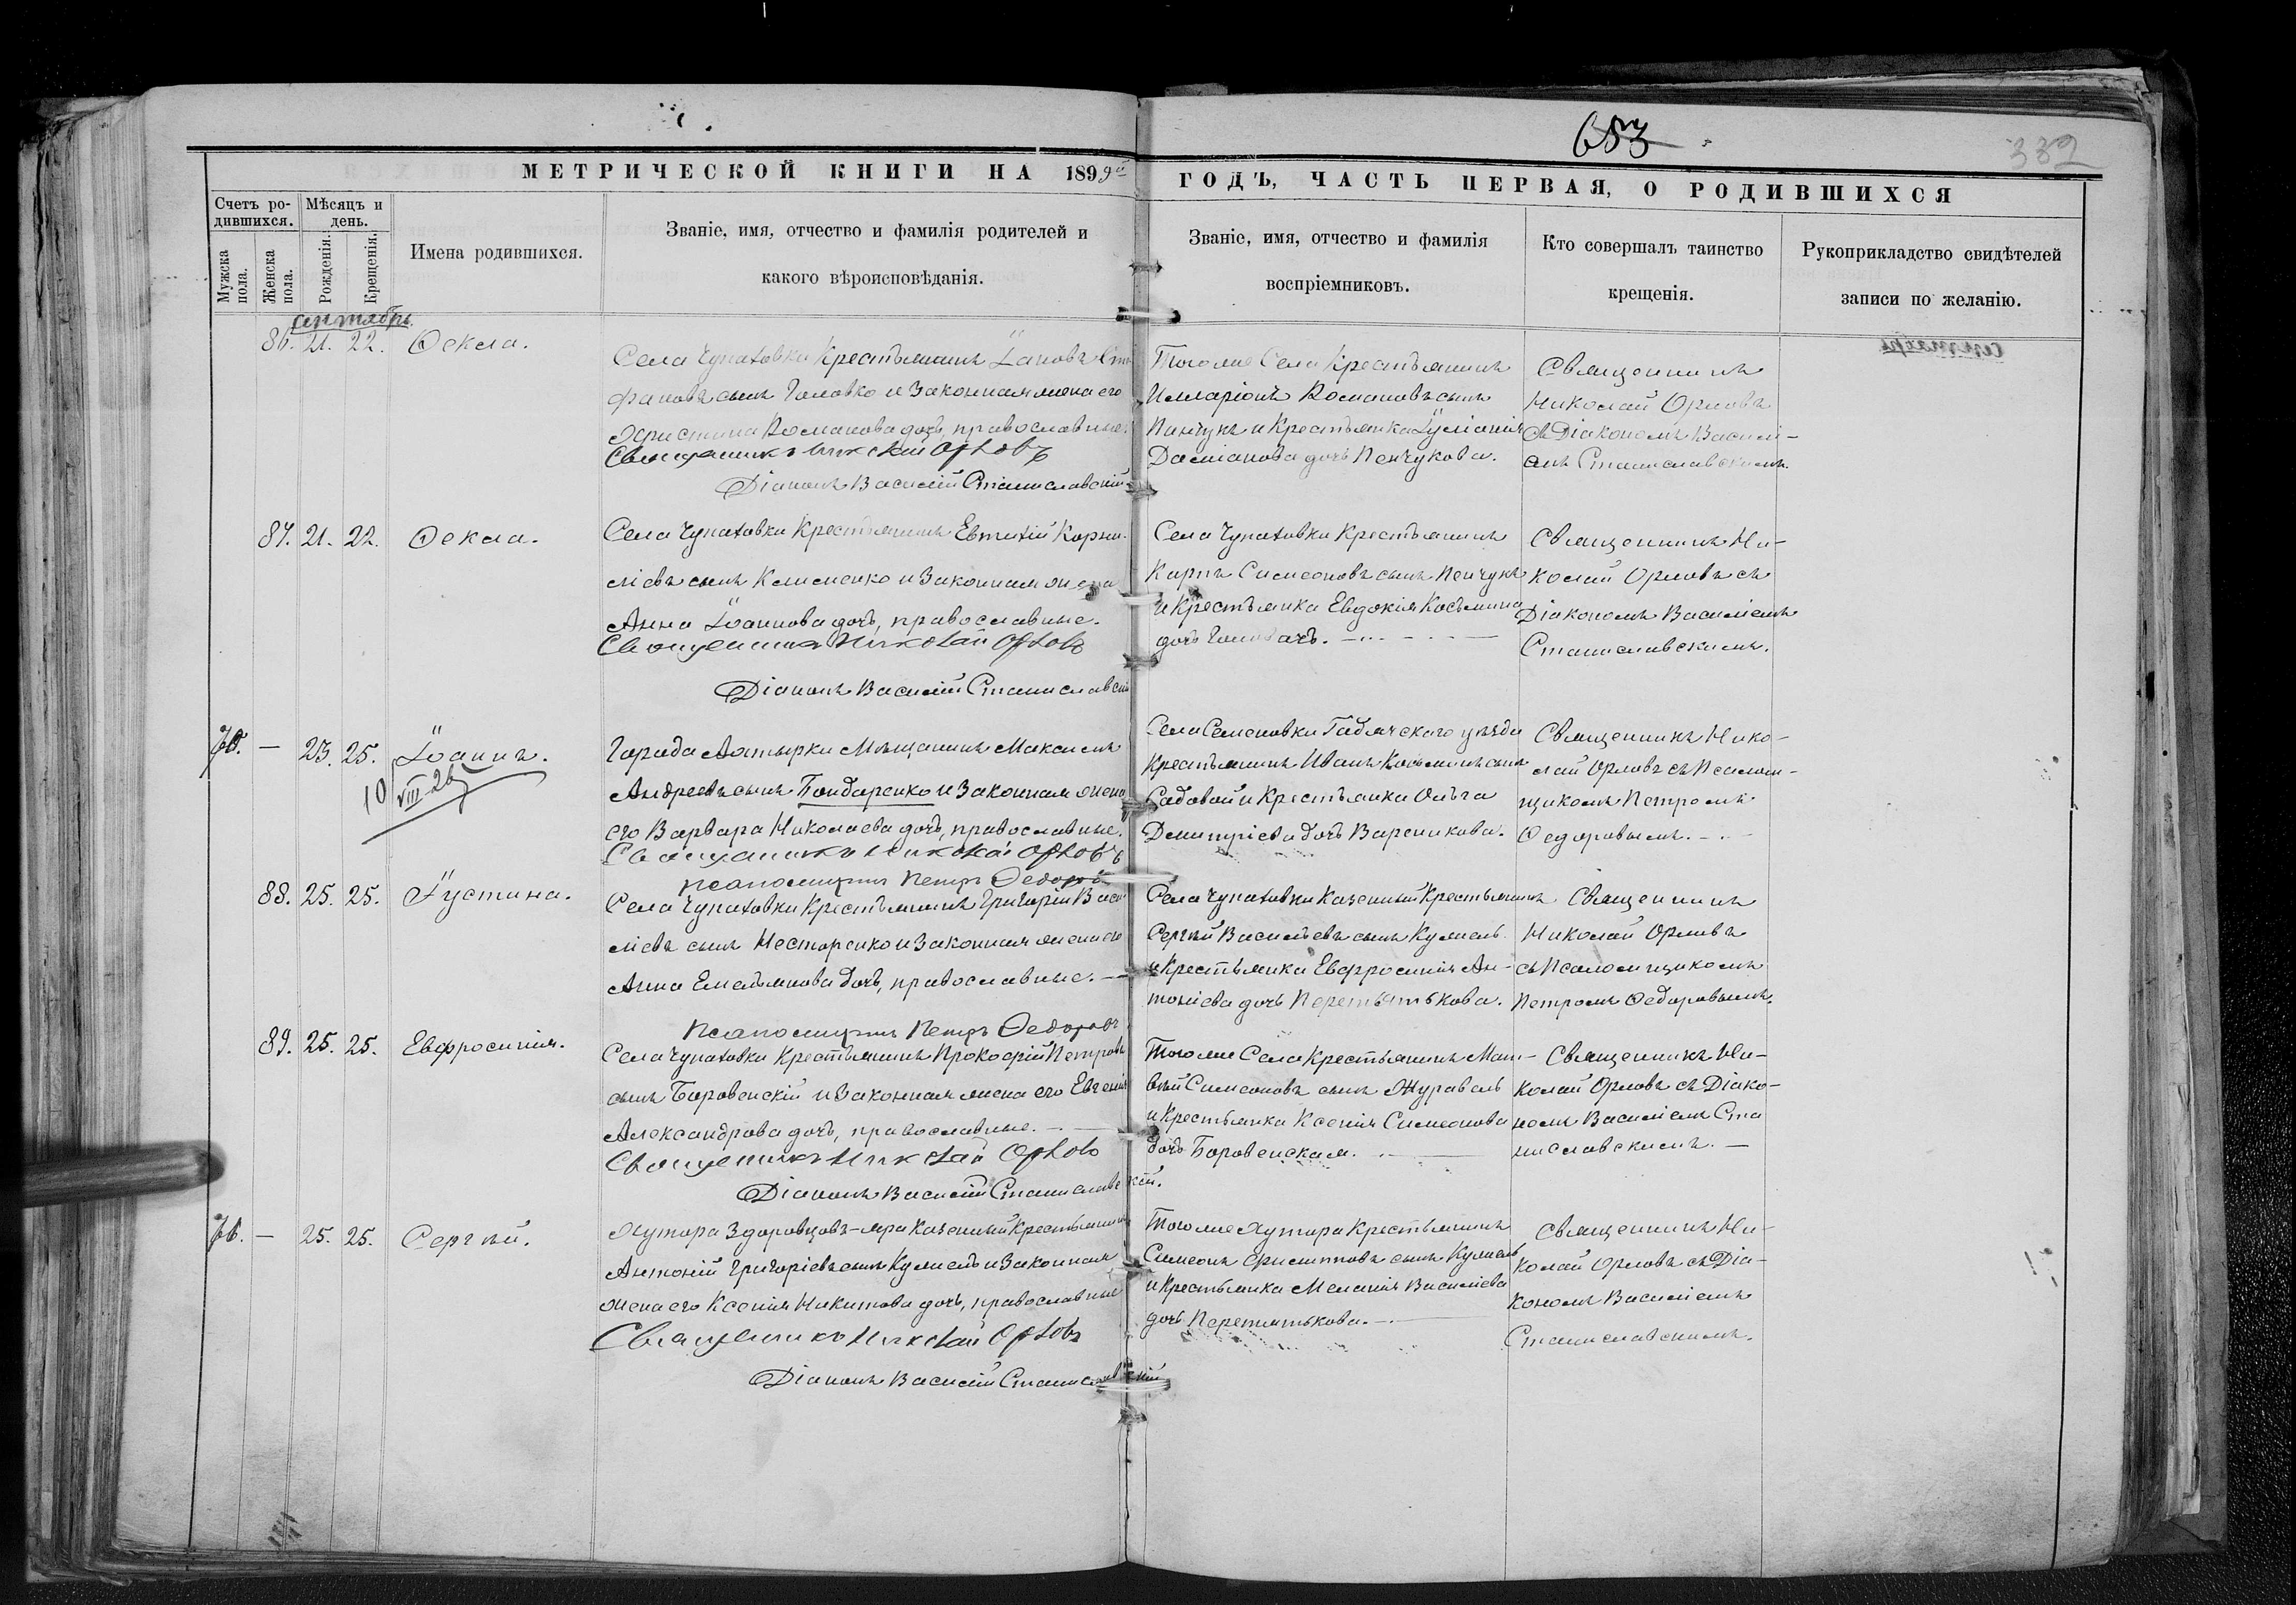 653
332
МЕТРИЧЕСКОЙ КНИГИ НА 1899й ГОДЪ, ЧАСТЬ ПЕРВАЯ, О РОДИВШИХСЯ
Счетъ ро-
дившихся.
Мужска пола.
Женска пола.
Мѣсяцъ и
день.
Рожденія.
Крещенія.
Имена родившихся.
Званіе, имя, отчество и фамилія родителей и
какого вѣроисповѣданія.
Званіе, имя, отчество и фамилія
воспріемниковъ.
Кто совершалъ таинство
крещенія.
Рукоприкладство свидѣтелей
записи по желанію.
Сентябрь
86. 21. 22. Ѳекла.
Села Чупаховки Крестьянинъ Іаковъ Сте-
фановъ сынъ Головко и законная жена его
Христина Романова дочь, православные.
Священникъ Николай Орловъ
Діаконъ Василій Станиславскій
Того же Села Крестьянинъ
Илларіонъ Романовъ сынъ
Панчукъ и Крестьянка Іуліанія
Даміанова дочь Пенчукова.
Священникъ
Николай Орловъ
съ Діакономъ Василі-
емъ Станиславскимъ.
87. 21. 22. Ѳекла.
Села Чупаховки Крестьянинъ Евтихій Корни-
ліевъ сынъ Клименко и законная жена
Анна Іоаннова дочь, православные.
Священникъ Николай Орловъ
Діаконъ Василій Станиславскій
Села Чупаховки Крестьянинъ
Карпъ Симеоновъ сынъ Пенчукъ
и Крестьянка Евдокія Косьмина
дочь
Священникъ Ни-
колай Орловъ съ
Діакономъ Василіемъ
Станиславскимъ.
70. — 23. 25. Іоаннъ.
10/VIII-26
Города Ахтырки Мѣщанинъ Максимъ
Андреевъ сынъ Бондаренко и законная жена
его Варвара Николаева дочь, православные.
Священникъ Николай Орловъ
Псаломщикъ Петръ Ѳедоровъ
Села Семеновки Гадячскаго уѣзда
Крестьянинъ Иванъ Косьминъ сынъ
Садовой и Крестьянка Ольга
Димитріева дочь Вареникова.
Священникъ Нико-
лай Орловъ съ Псалом-
щикомъ Петромъ
Ѳедоровымъ.
88. 25. 25. Іустина.
Села Чупаховки Крестьянинъ Григорій Васи-
ліевъ сынъ Несторенко и законная жена его
Анна Емельянова дочь, православные.
Псаломщикъ Петръ Ѳедоровъ
Села Чупаховки Казенный Крестьянинъ
Сергѣй Васильевъ сынъ Кужель
и Крестьянка Евфросинія Ан-
тоніева дочь Перетятькова.
Священникъ
Николай Орловъ
съ Псаломщикомъ
Петромъ Ѳедоровымъ.
89. 25. 25. Евфросинія.
Села Чупаховки Крестьянинъ Прокофій Петровъ
сынъ Боровенскій и законная жена его Евгенія
Александрова дочь, православные.
Священникъ Николай Орловъ
Діаконъ Василій Станиславскій.
Того же Села Крестьянинъ Мат-
вѣй Симеоновъ сынъ Журавель
и Крестьянка Ксенія Симеонова
дочь Боровенская.
Священникъ Ни-
колай Орловъ съ Діако-
номъ Василіемъ Ста
ниславскимъ.
71. — 25. 25. Сергѣй.
Хутора Здоровцовъ-яра Казенный Крестьянинъ
Антоній Григоріевъ сынъ Кужель и законная
жена его Ксенія Никитова дочь, православные
Священникъ Николай Орловъ
Діаконъ Василій Станиславскій
Того же Хутора Крестьянинъ
Симеонъ Филипповъ сынъ Кужель
и Крестьянка Меланія Василіева
дочь Перетятькова.
Священникъ Ни-
колай Орловъ съ Діа-
кономъ Василіемъ
Станиславскимъ.